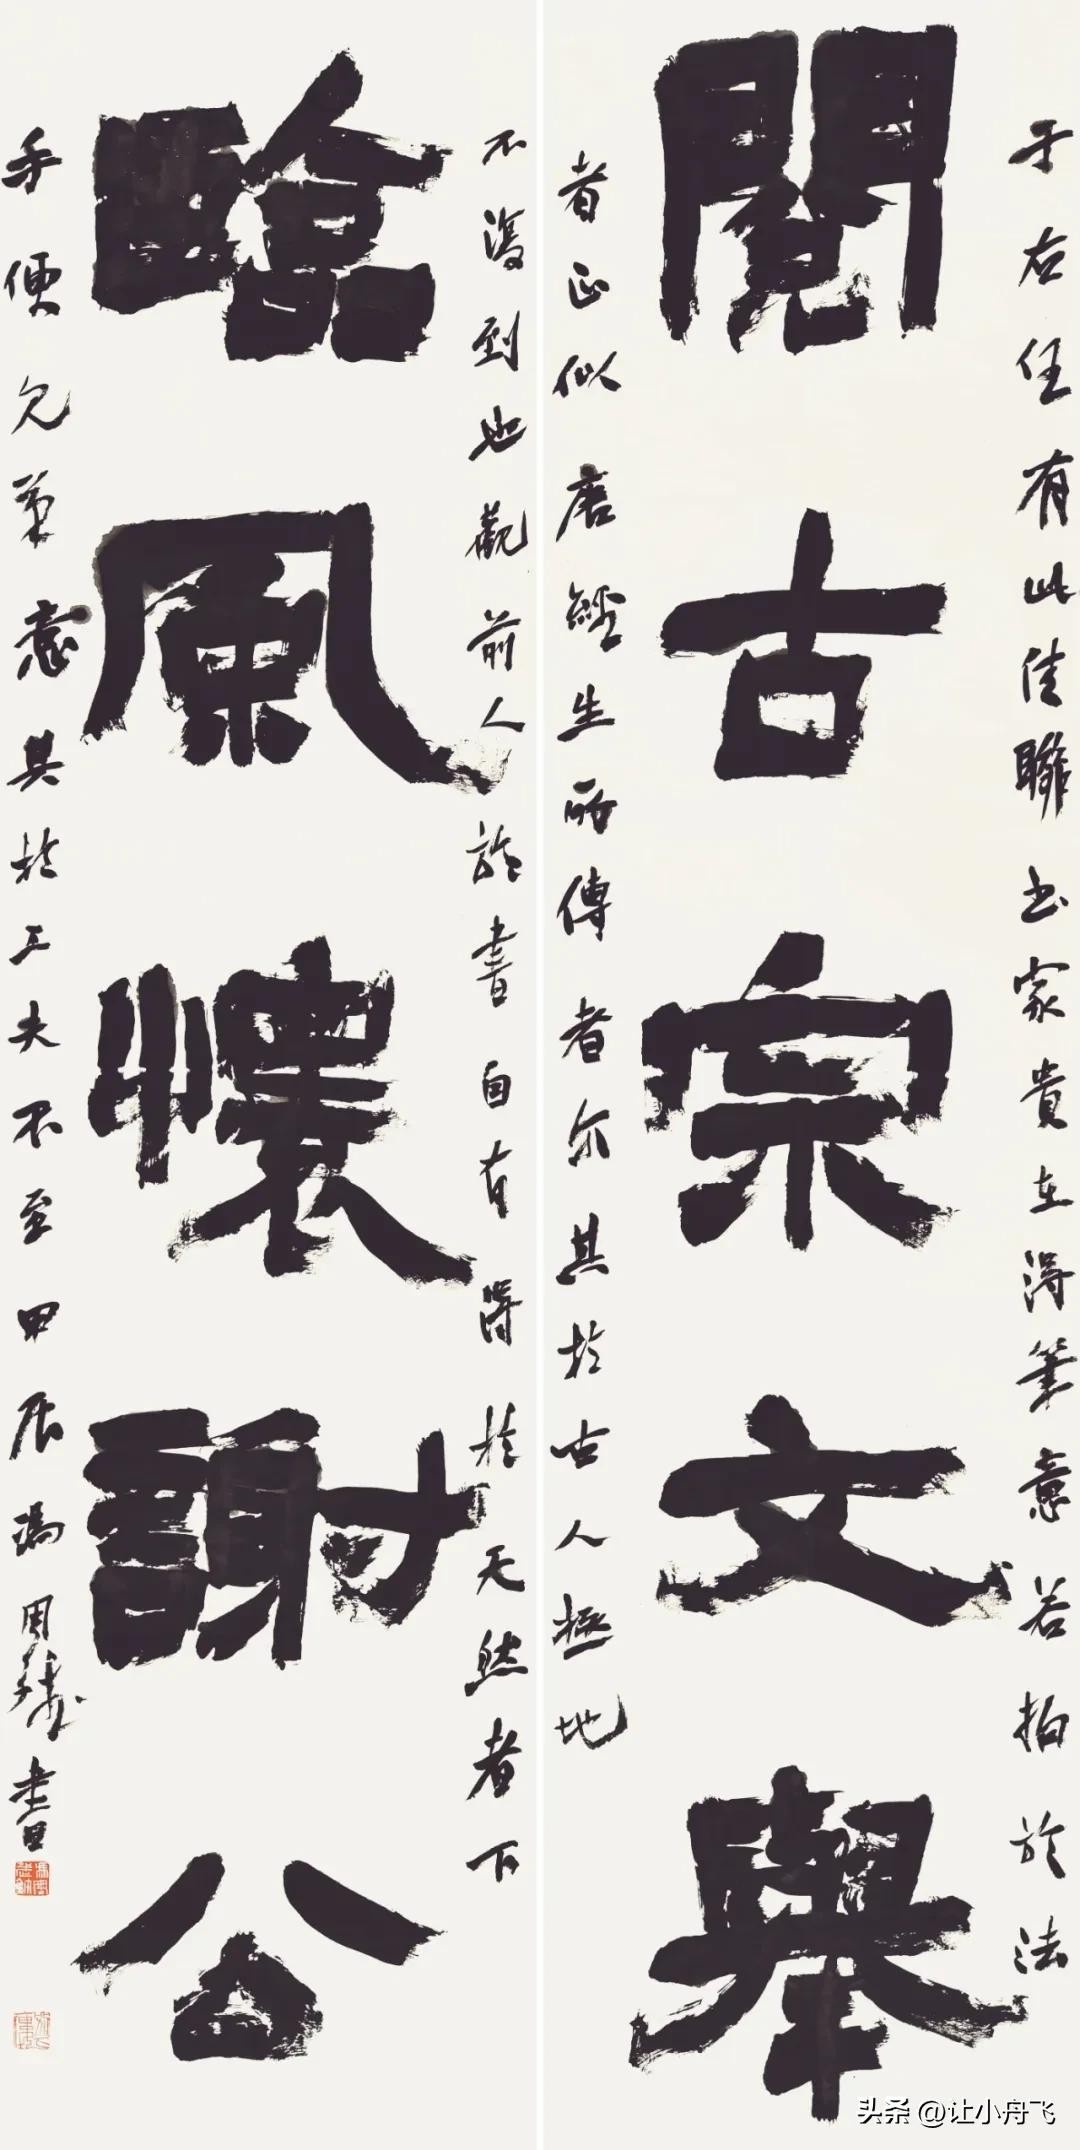 閱古宗文舉
臨風懷謝公
于右任有此佳聯書家貴在得筆意若拘於法
者正似唐經生所傳者尔其於古人極地
不復到也觀前人於書自有得於天然者下
手便見筆意其於工夫不至
書
头条 @让小舟飞